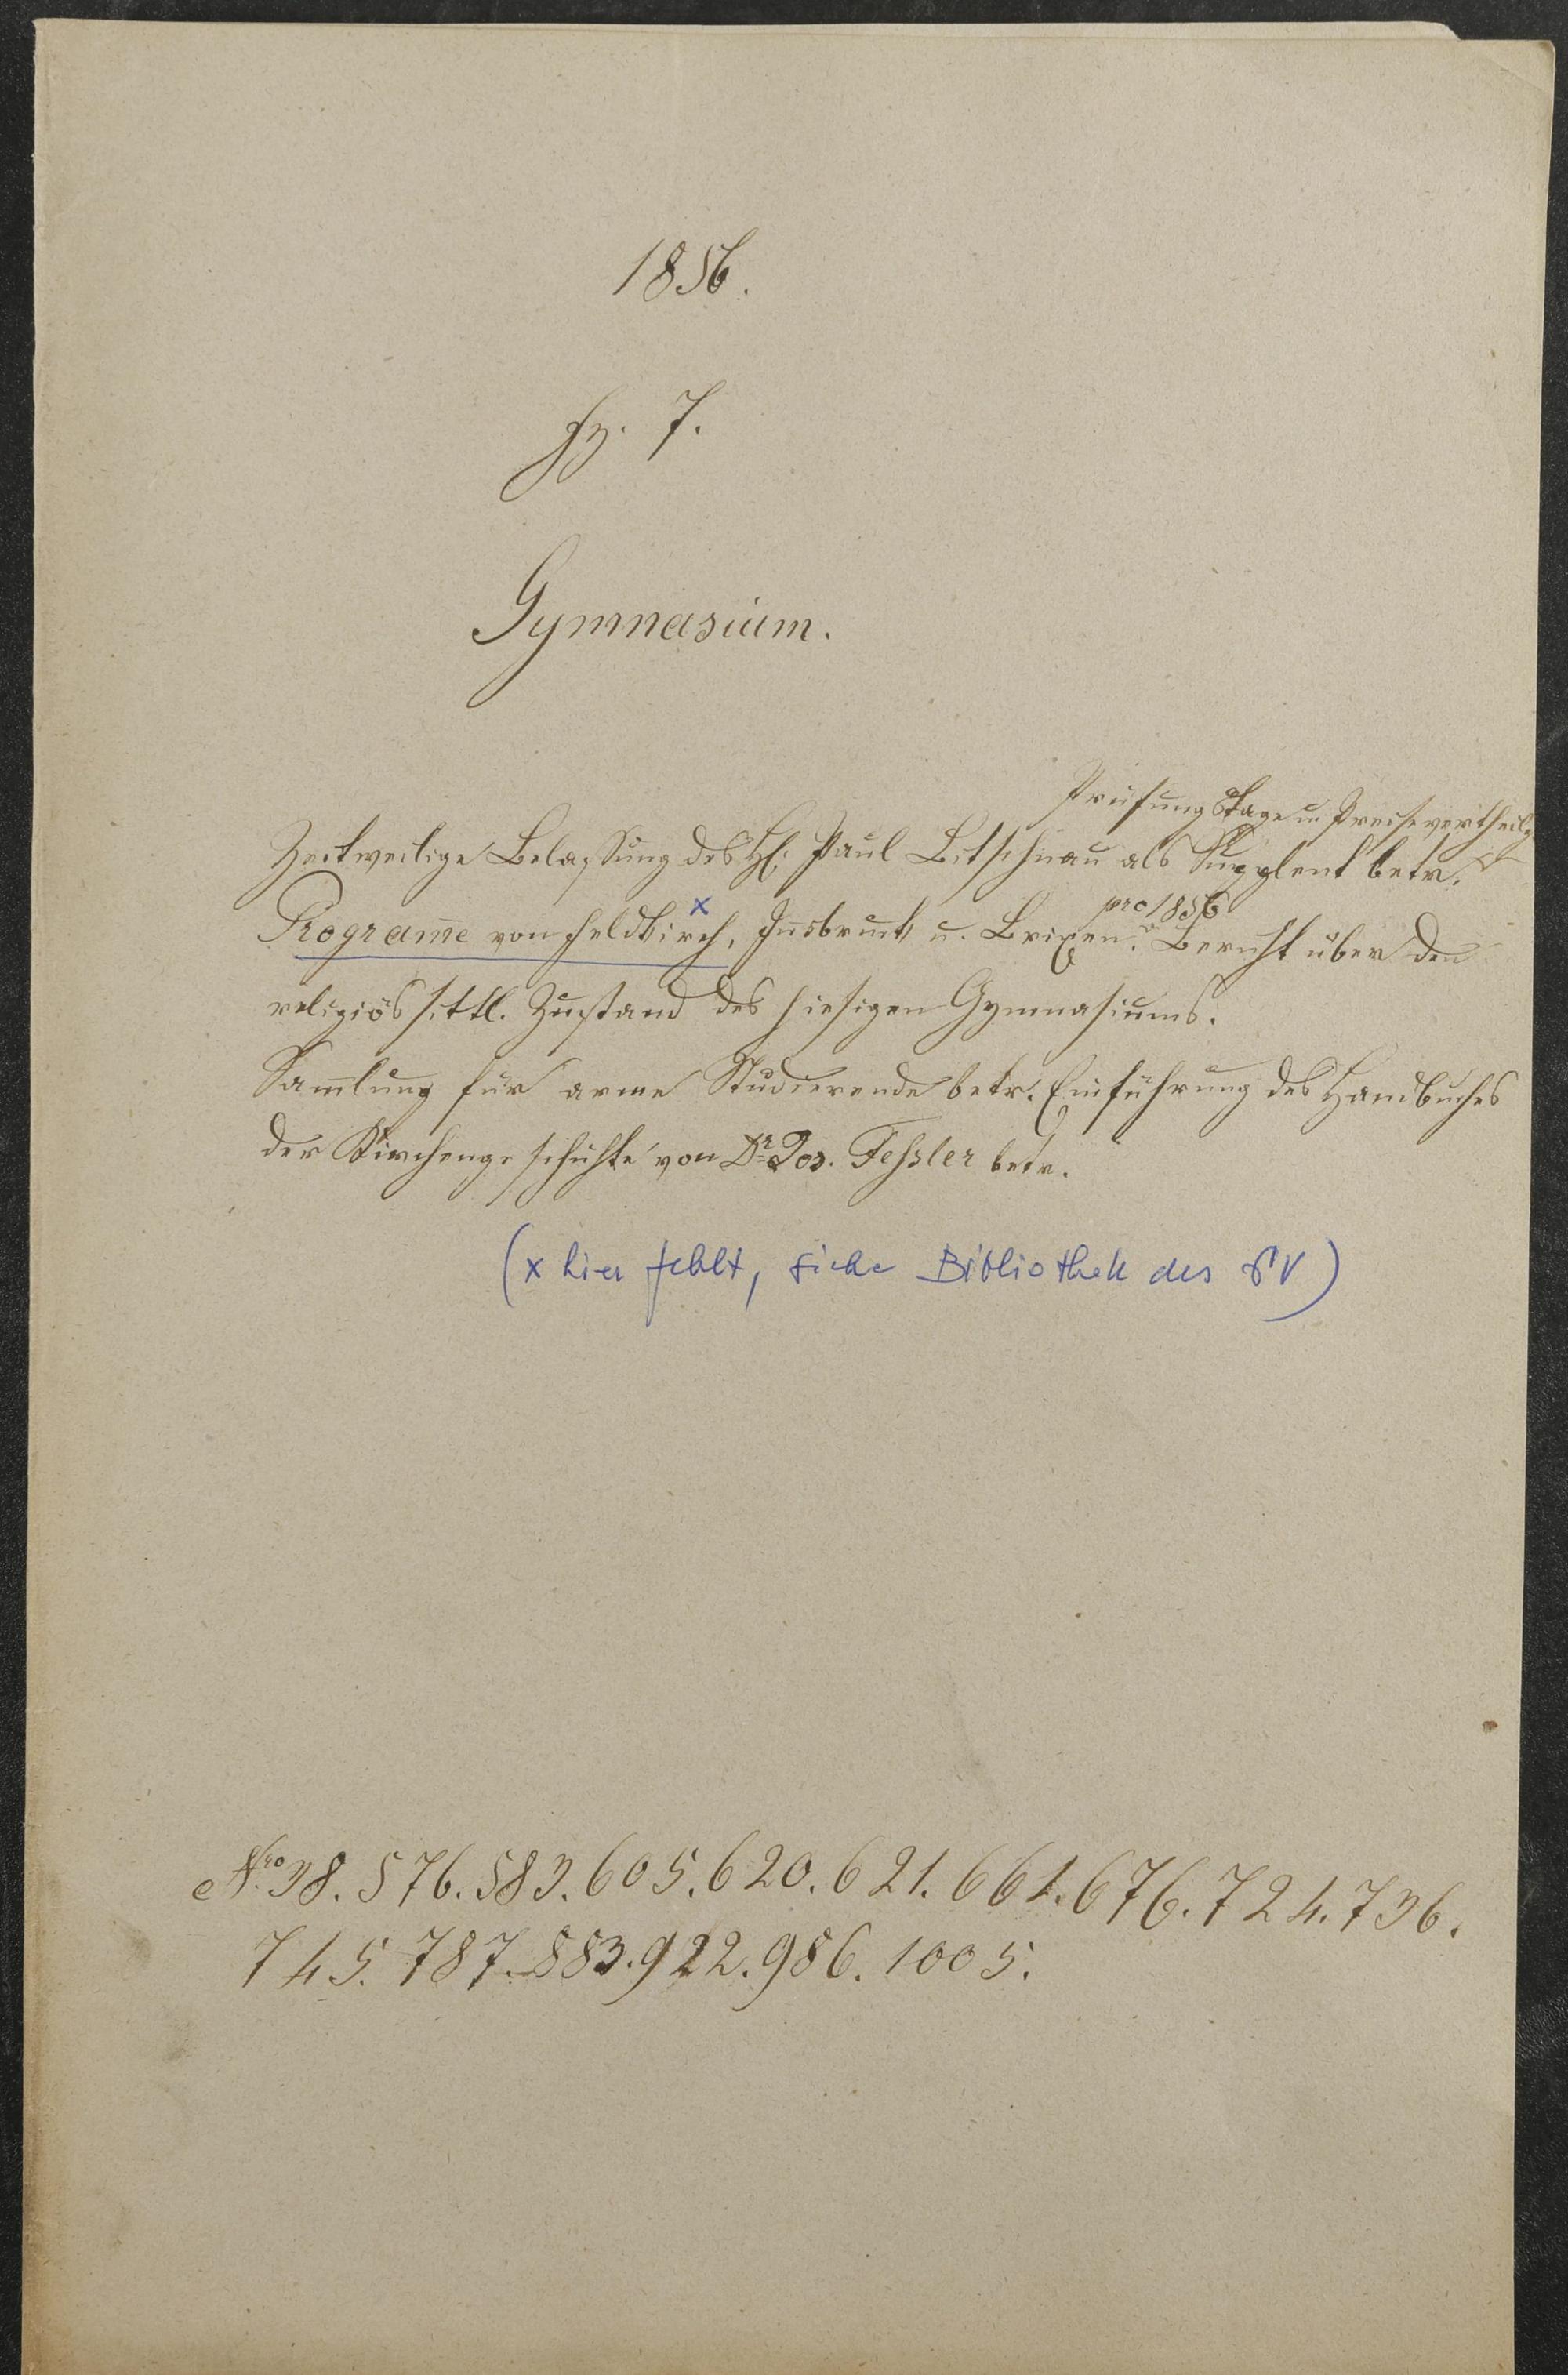 1856.
fz. 7.
Gymnasium.
Prüfungstage u. Preisevertheilg
Zeitweilige Belassung des H. Paul Bitschnau als Supplent betr.
pro 1856
Programe von Feldkirch, x Insbruck u. Brixen. Bericht über den
religiös sittl. Zustand des hiesigen Gymnasiums.
Samlung für arme Studierende betr. Einführung des Handbuches
der Kirchengeschichte von Dr. Jos. Fessler betr.
(x hier fehlt, siehe Bibliothek des GV)
Nro 38. 576. 583. 605. 620. 621. 661. 676. 724. 736.
745. 787. 883. 922. 986. 1005.